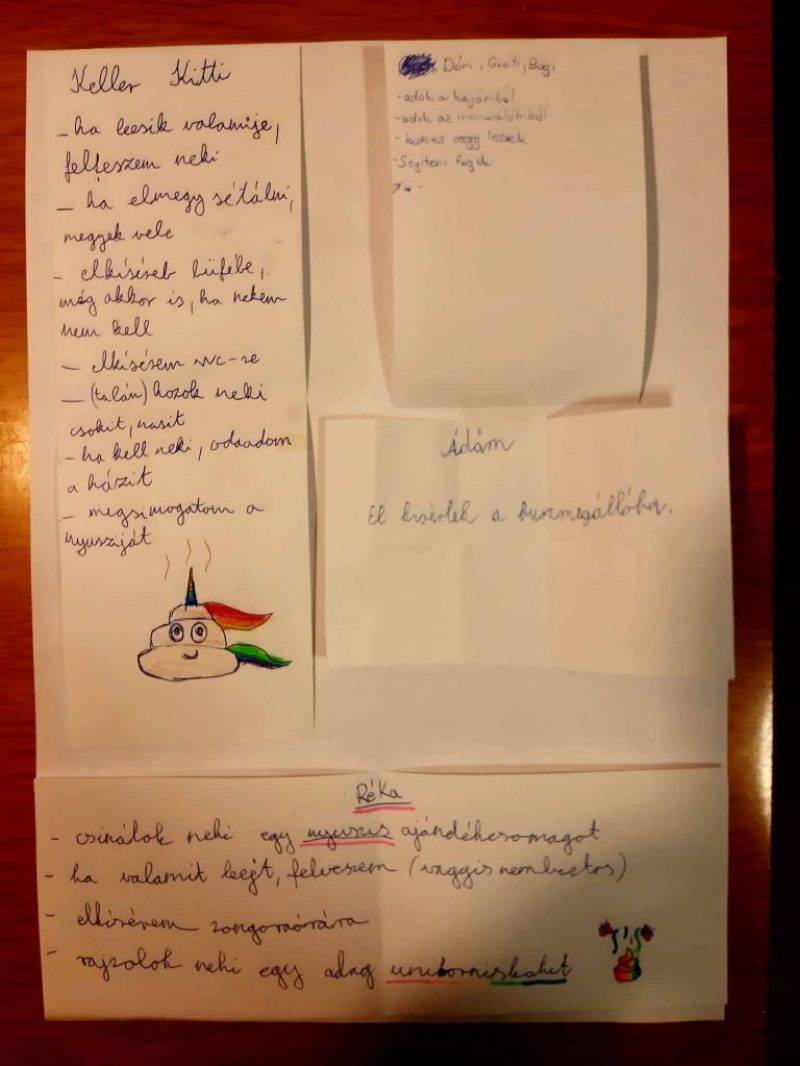 Keller Kitti
- ha leesik valamije,
felteszem neki
- ha elmegy sétálni,
megyek vele
- elkísérek büfébe,
még akkor is, ha nekem
nem kell
- elkísérem WC-re
- (talán) hozok neki
csokit, nasit
- ha kell neki, odaadom
a házit
- megsimogatom a
nyusziját
Dóri, Gréti, Bogi
-adok a kajámból
-adok az innivalómból
- kedves vagy leszek
-Segíteni fogok
Ádám
El kisérlek a buszmegállóhoz.
Réka
- csinálok neki egy nyuszis ajándékcsomagot
- ha valamit leejt, felveszem (vaggis nem biztos)
- elkísérem zongoraórára
- rajzolok neki egy adag unikorniskakit